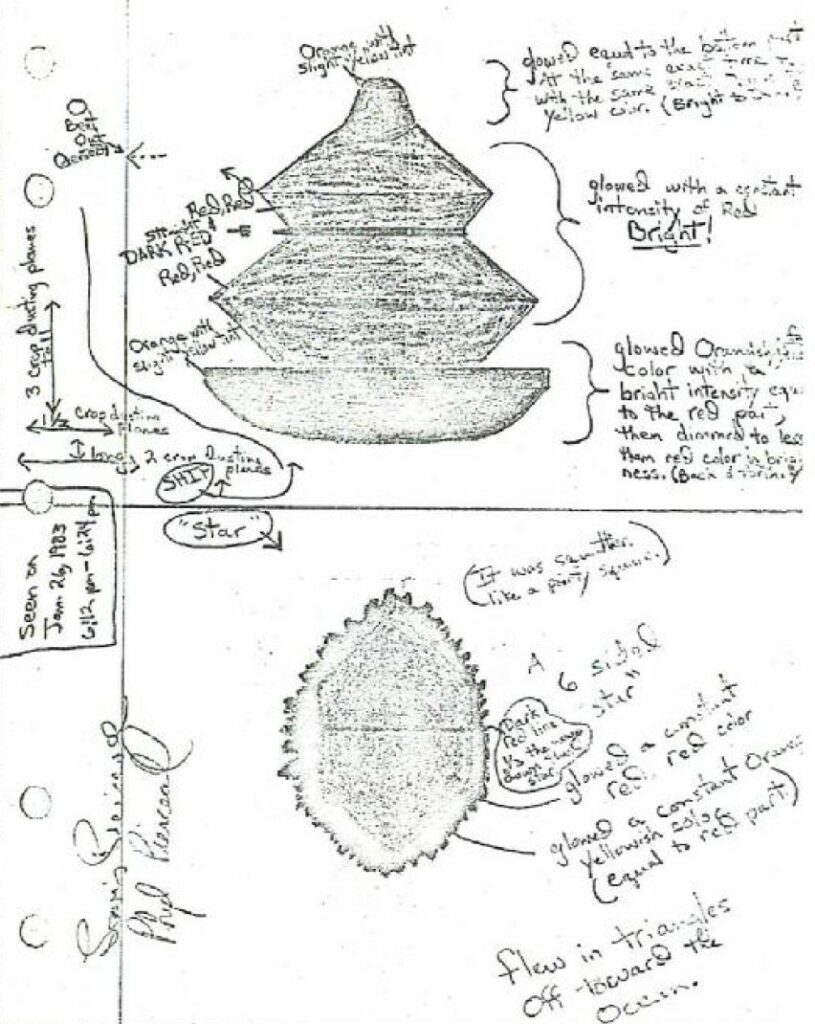 Orange with
slight yellow tint
glowed equal to the bottom part
At the same exact time
with the same exact
yellow color. (Bright to
Bent
Out
3 Crop dusting planes
tall
Red, Red
straight
DARK RED
Red, Red
glowed with a constant
intensity of Red
Bright!
Orange with
slight yellow tint
glowed Orangish
color with a
bright intensity equal
to the red part,
then dimmed to less
then red color in bright
ness. (Back
crop dusting
planes
long
2 crop Dusting
planes
SHIP
"Star"
Seen on
Jan. 26, 1983
6:12 pm - 6:24 pm
(It was
like a
A
6 sided
star"
Dark
red line
1/3 the way
down
star
glowed a constant
red, red color
glowed a constant Orange
yellowish color
(equal to red part)
flew in triangles
off toward the
Ocean.